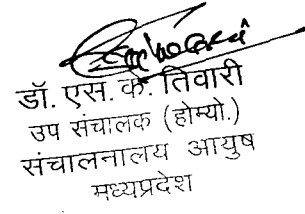 डॉ. एस. के. तिवारी
उप संचालक (होम्यो.)
संचालनालय आयुष
मध्यप्रदेश